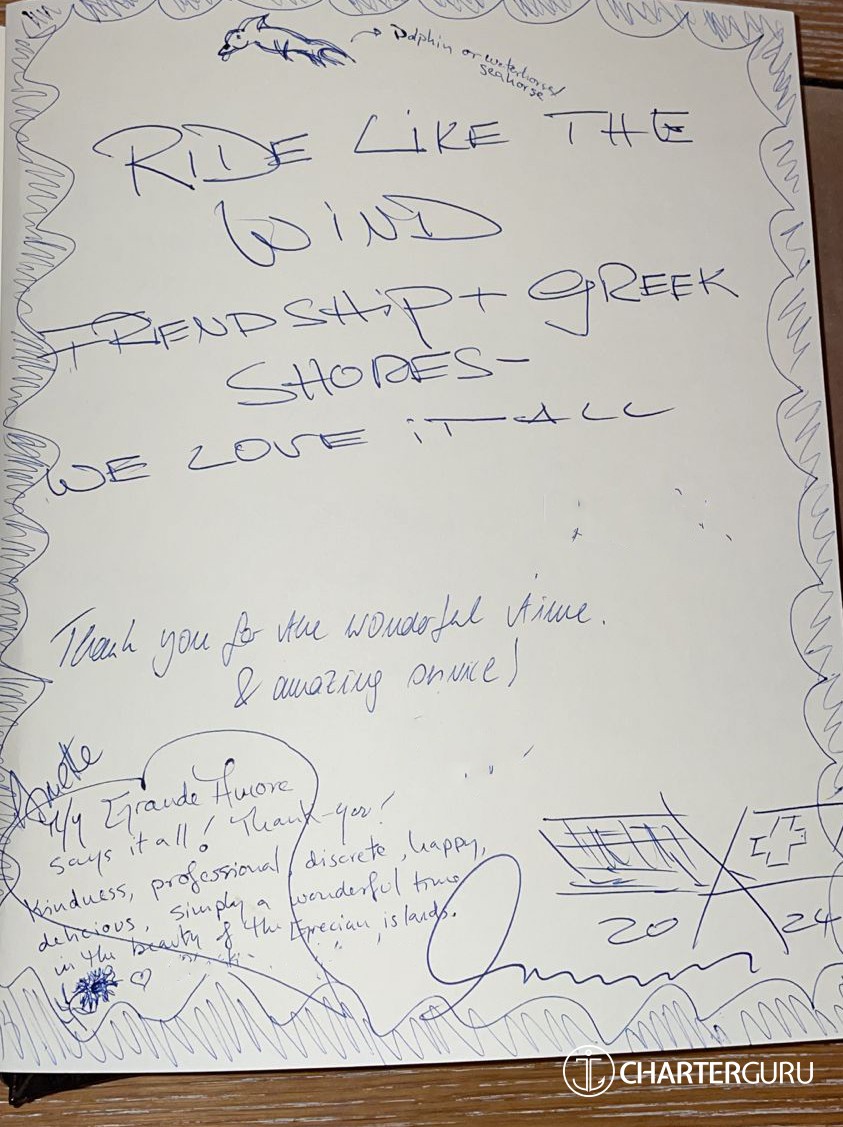 Dolphin or waterhorse/
seahorse
RIDE LIKE THE
WIND
FRIENDSHIP + GREEK
SHORES-
WE LOVE IT ALL
Thank you for the wonderful time.
& amazing service!
M/Y Grande Amore
says it all! Thank-you!
Kindness, professional, discrete, happy,
delicious, simply a wonderful time
in the beauty of the Grecian islands.
2024
CHARTERGURU